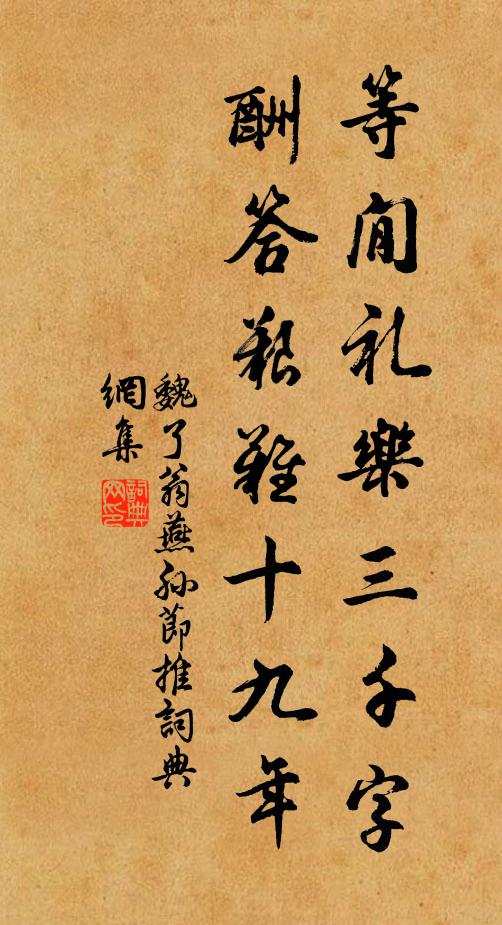 等閒礼樂三千字
酬答艱難十九年
魏了翁燕孫節推詞典
網集
詞典
网印